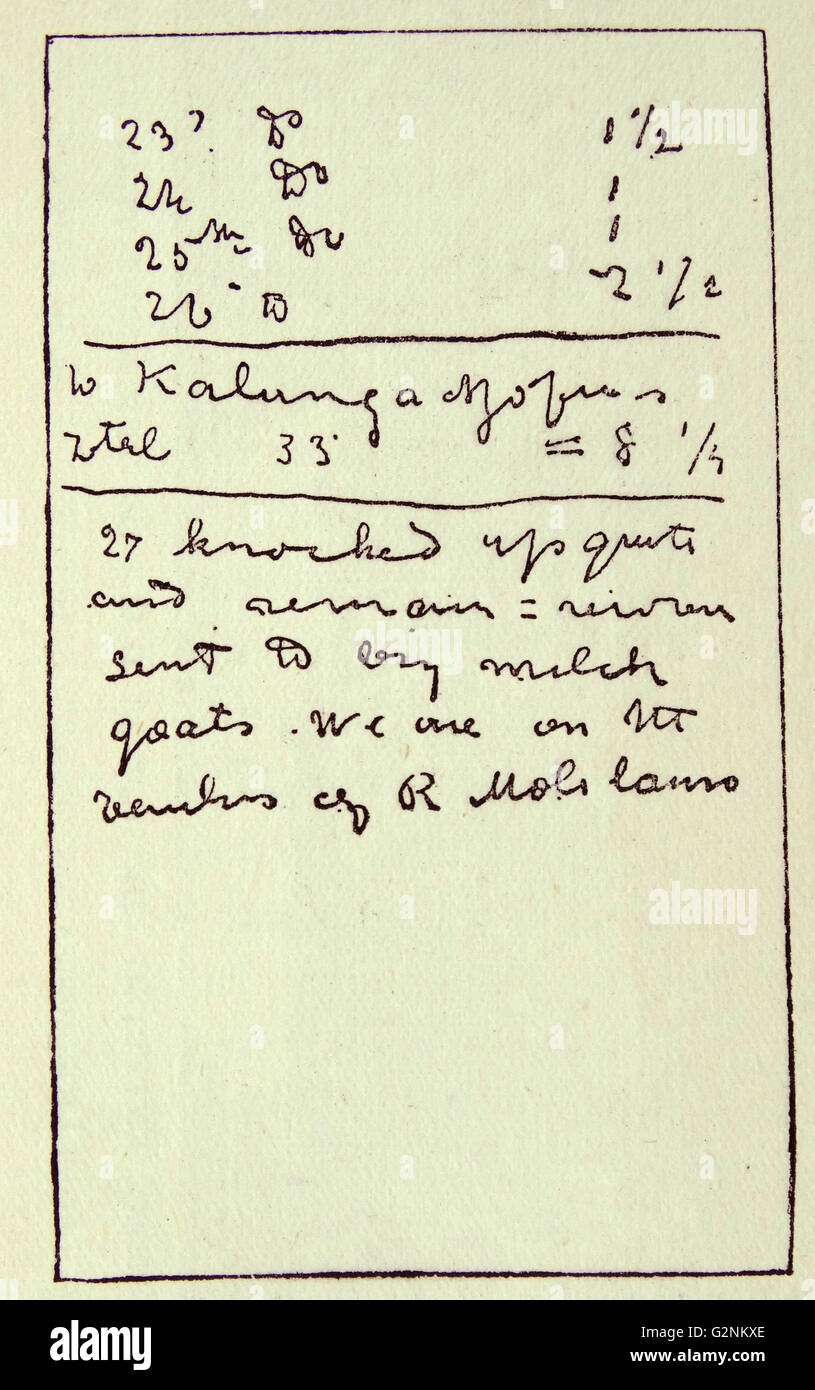 23d Do 1 1/2
24 Do 1
25th Do 1
26 - To 2 1/2
to Kalunganjofu's
total 33 = 8 1/4
27 knocked up quite
and remain = recover
sent to buy milch
goats. We are on the
banks of R Molilamo
alamy
a
alamy stock photo
Image ID: G2NKXE
www.alamy.com